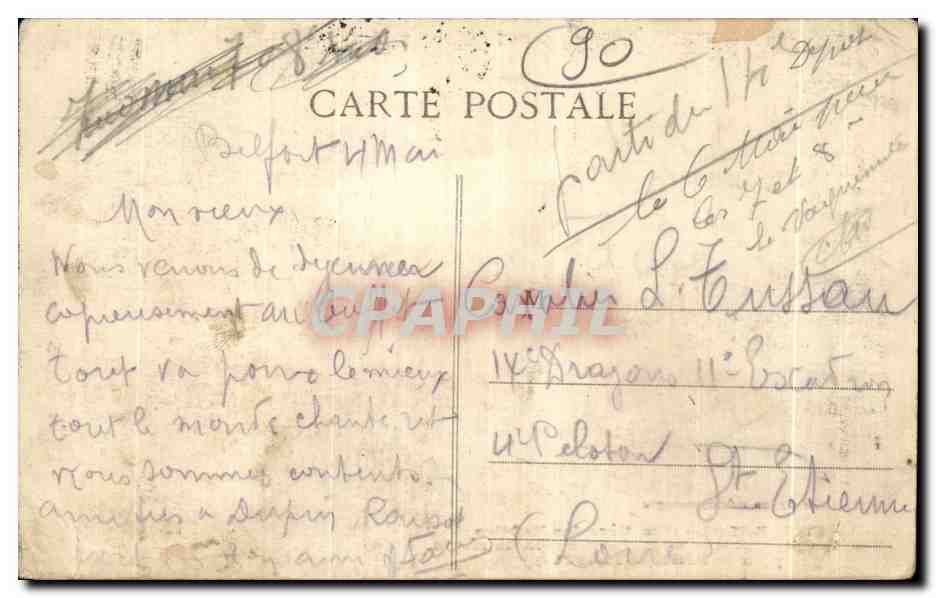 90
CARTE POSTALE
Parti du 14e Depot
le 6 Mai
les 7 et 8
le
Belfort 4 Mai
Mon vieux
Nous venons de dejeuner
copieusement au buffet
tout va pour le mieux
tout le monde chante et
nous sommes contents.
amities a Dupin
Cavalier L. Tussau
14e Dragons 11e Escadron
4e Peloton
St Etienne
(Loire)
CPAPHIL